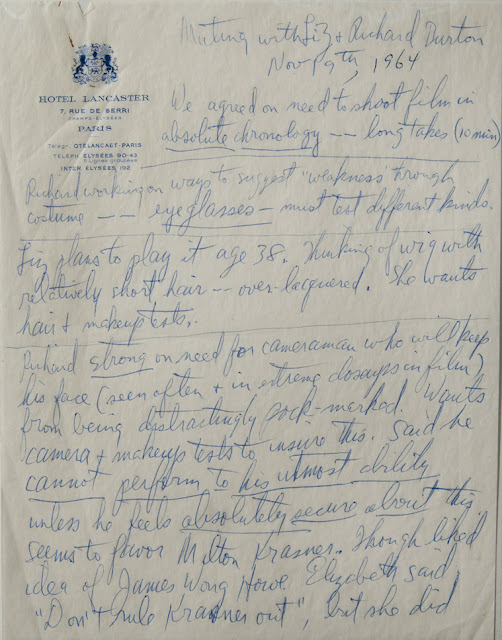 Meeting with Liz & Richard Burton
Nov 9th, 1964
HOTEL LANCASTER
7, RUE DE BERRI
CHAMPS-ELYSÉES
PARIS
OTELANCAST-PARIS
TELEPH ELYSÉES 90-43
INTER ELYSÉES 102
We agreed on need to shoot film in
absolute chronology -- long takes (10 min)
Richard working on ways to suggest "weakness through
costume -- eyeglasses - must test different kinds.
Liz plans to play it age 38. Thinking of wig with
relatively short hair -- over-lacquered. She wants
hair & makeup tests.
Richard strong on need for cameraman who will keep
his face (seen often & in extreme closeups in film)
from being distractingly pock-marked. Wants
camera & makeup tests to insure this. Said he
cannot perform to his utmost ability
unless he feels absolutely secure about this,
seems to favor Milton Krasner. Though liked
idea of James Wong Howe. Elizabeth said,
"Don't rule Krasner out", but she did